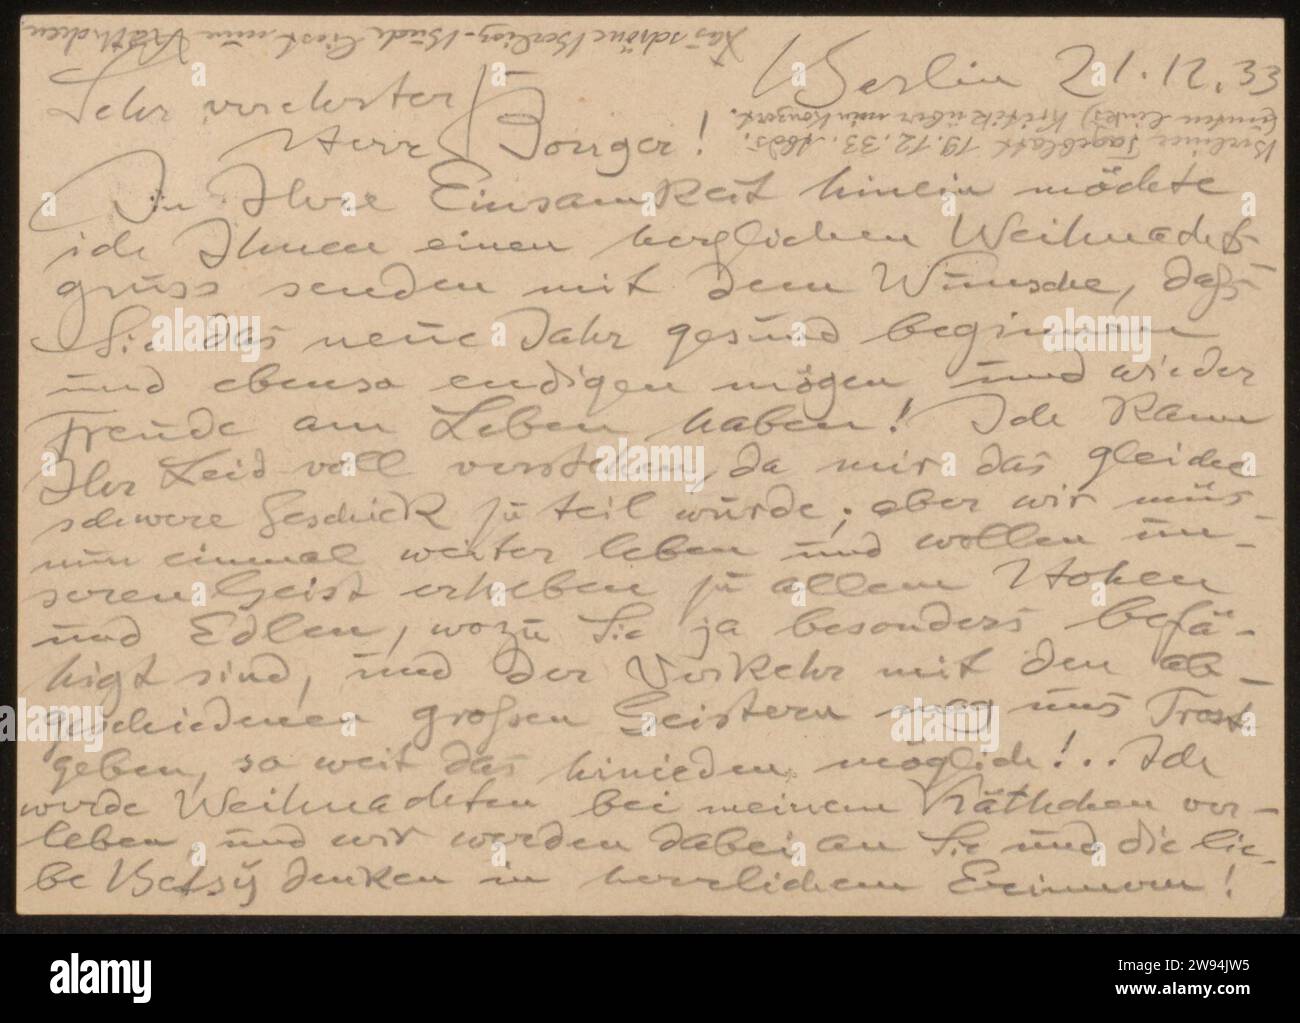 Das schöne Berlioz-Buch liest nun Käthchen
Berlin 21.12.33
Berliner Tageblatt 19.12.33. Abds.
(unten links) Kritik über mein Konzert.
Sehr verehrter
Herr Bonger!
In Ihre Einsamkeit hinein möchte
ich Ihnen einen herzlichen Weihnachts-
gruss senden mit dem Wunsche, daß
Sie das neue Jahr gesund beginnen
und ebenso endigen mögen und wieder
Freude am Leben haben! Ich kann
Ihr Leid voll verstehen, da mir das gleiche
schwere Geschick zu teil wurde; aber wir müs-
nun einmal weiter leben und wollen un-
seren Geist erheben zu allem Hohen
und Edlen, wozu Sie ja besonders befä-
higt sind, und der Verkehr mit den ab-
geschiedenen großen Geistern mag uns Trost
geben, so weit das hinieden möglich!.. Ich
werde Weihnachten bei meinem Käthchen ver-
leben und wir werden dabei an Sie und die lie-
be Betsÿ denken in herzlichem Erinnern!
alamy
Image ID: 2W94JW5
www.alamy.com